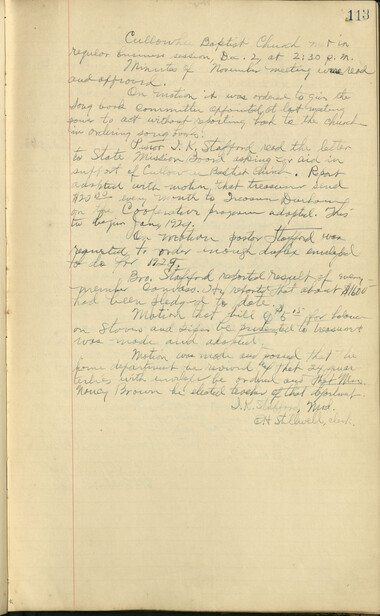 113
Cullowhee Baptist Church met in
regular business session, Dec. 2, at 2:30 P.M.
Minutes of November meeting was read
and approved.
On motion it was ordered to give the
song book committee appointed at last meeting
power to act without reporting back to the church
in ordering song books.
Pastor T.K. Stafford read the letter
to State Mission Board asking for aid in
support of Cullowhee Baptist Church. Report
adopted with motion, that treasurer send
$20.00 every month to Treasurer Durham
on the Cooperative program adopted. This
to begin Jan, 1929.
On motion pastor Stafford was
requested to order enough duplex envelopes
to do for 1929.
Bro. Stafford reported result of every
member canvass. He reported that about $1600
had been pledged to date.
Motion that bill of for balance
on Stoves and pipes be presented to treasurer
was made and adopted.
Motion was made and passed that
home department be revived that 24 quar
terlies with envelope be ordered and that Mrs
Brown be elected teacher of that department.
T.K. Stafford, Mod.
E.H. Stillwell, Clerk.